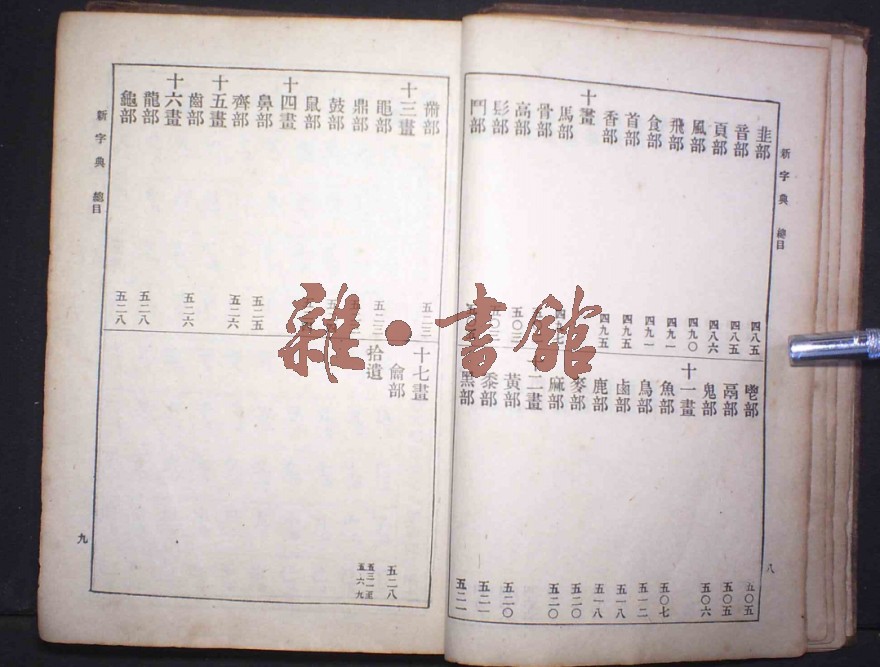 新字典 總目
韭部 四八五
音部 四八五
頁部 四八六
風部 四九〇
飛部 四九一
食部 四九一
首部 四九五
香部 四九五
十畫
馬部
骨部
高部 五〇三
髟部
鬥部
鬯部 五〇五
鬲部 五〇五
鬼部 五〇六
十一畫
魚部 五〇七
鳥部 五一二
鹵部 五一八
鹿部 五一八
麥部 五二〇
麻部 五二〇
二畫
黃部 五二〇
黍部 五二一
黑部 五二一
八
新字典 總目
黹部 五二三
十三畫
黽部 五二三
鼎部
鼓部
鼠部
十四畫
鼻部 五二五
齊部 五二六
十五畫
齒部 五二六
十六畫
龍部 五二八
龜部 五二八
十七畫
龠部 五二八
拾遺 五三一至五六九
九
雜·書館